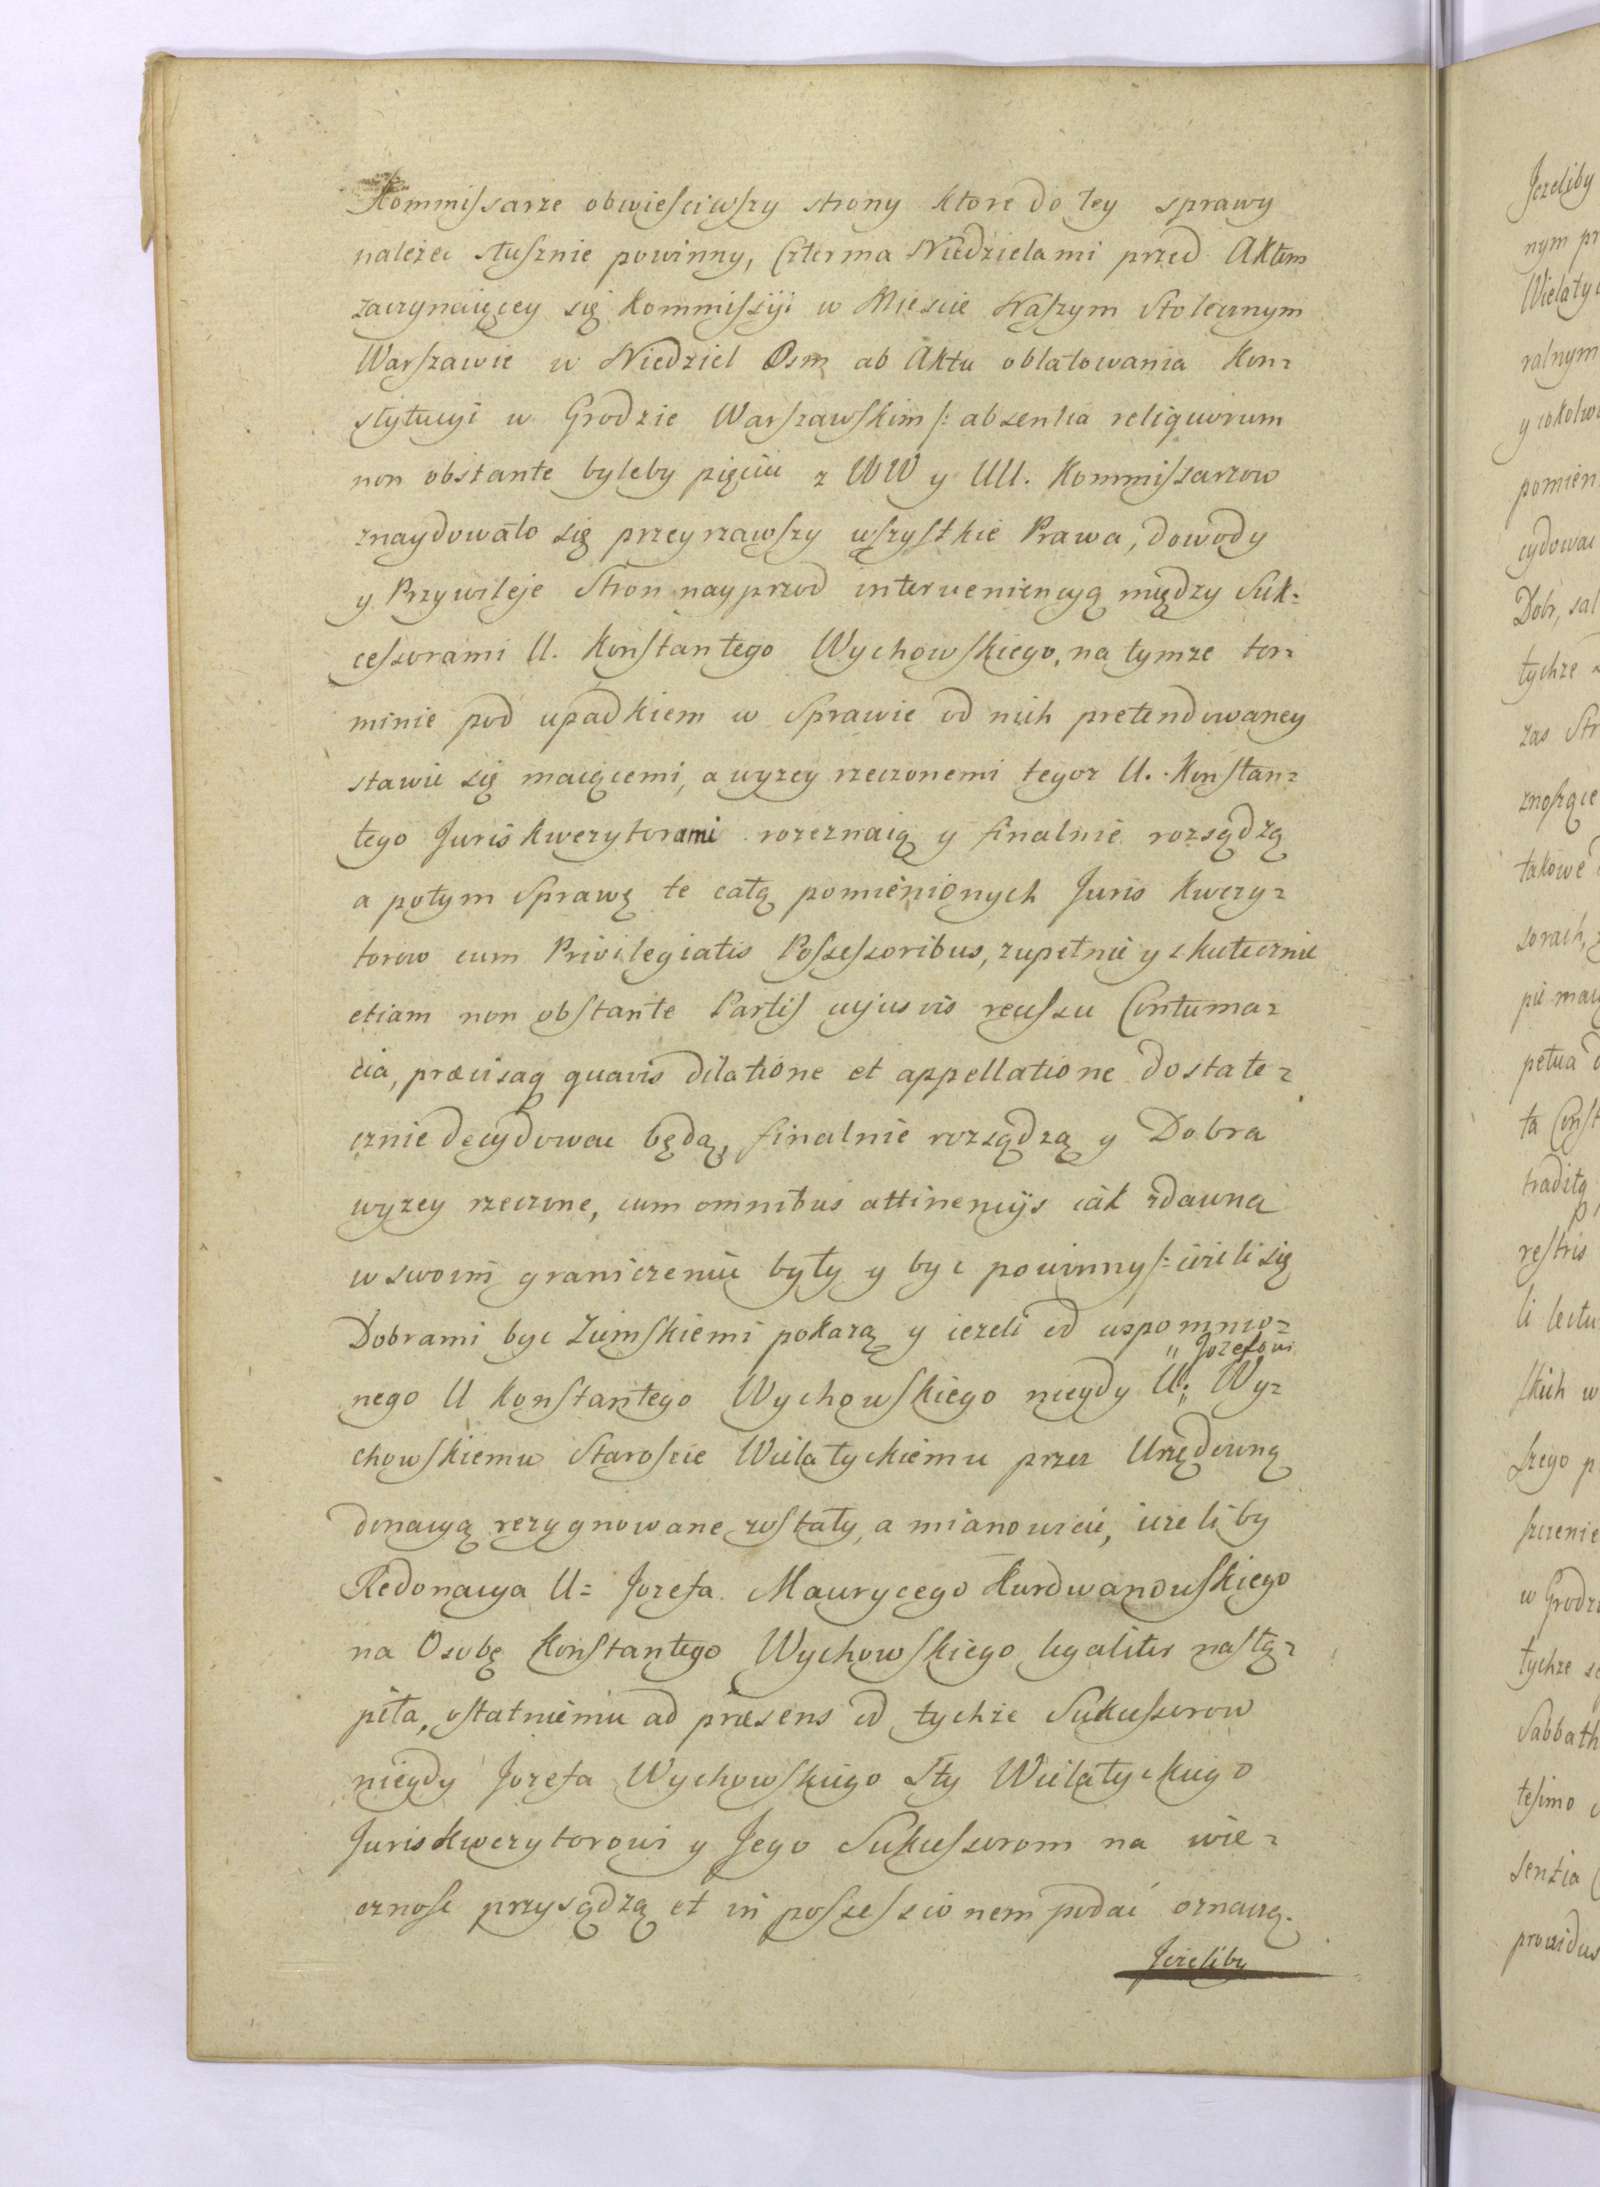 Kommissarze obwieściwszy strony ktore do tey sprawy
należec słusznie powinny, Czterma Niedzielami przed Aktem
zaczynaiącey się Kommissyi w Miescie Naszym Stołecznym
Warszawie w Niedziel Osm ab Aktu oblatowania Kon=
stytucyi w Grodzie Warszawskim /: absentia reliquorum
non obstante byleby pięciu z WW y UU. Kommissarzow
znaydowało się przeyrzawszy wszystkie Prawa, dowody
y Przywileje Stron nayprzod interweniencyą między Suk=
cessorami U. Konstantego Wychowskiego, na tymze ter=
minie pod upadkiem w Sprawie od nich pretendowaney
stawic się maiącemi, a wyzey rzeczonemi tegoz U. Konstan=
tego Juris kwerytorami rozeznaią y finalnie rozsądzą
a potym Sprawę te całą pomienionych Juris Kwery=
torow cum Privilegiatis Possessoribus, zupełnie y skutecznie
etiam non obstante Partis cujusvis recussu Contuma=
cia, præcisaq quavis dilatione et appellatione dostate=
cznie decydowac będą, finalnie rozsądzą y Dobra
wyzey rzeczone, cum omnibus attinencijs iak zdawna
w swoim graniczeniu były y byc powinny /: ieżeli się
Dobrami byc Ziemskiemi pokazą y iezeli od wspomnio=
nego U Konstantego Wychowskiego niegdy U. " Jozefowi " Wy=
chowskiemu Staroscie Wielatyckiemu przez Urzędowną
donacyą rezygnowane zostały, a mianowicie, iezeliby
Redonacya U= Jozefa Maurycego Kurdwanowskiego
na Osobę Konstantego Wychowskiego legaliter nastą=
piła, ostatniemu ad præsens od tychże Sukcessorow
niegdy Jozefa Wychowskiego Sty Wielatyckiego
Juris Kwerytorowi y Jego Sukcessorom na wie=
cznosc przysądzą et in possessionem podać oznaczą.
Jezeliby